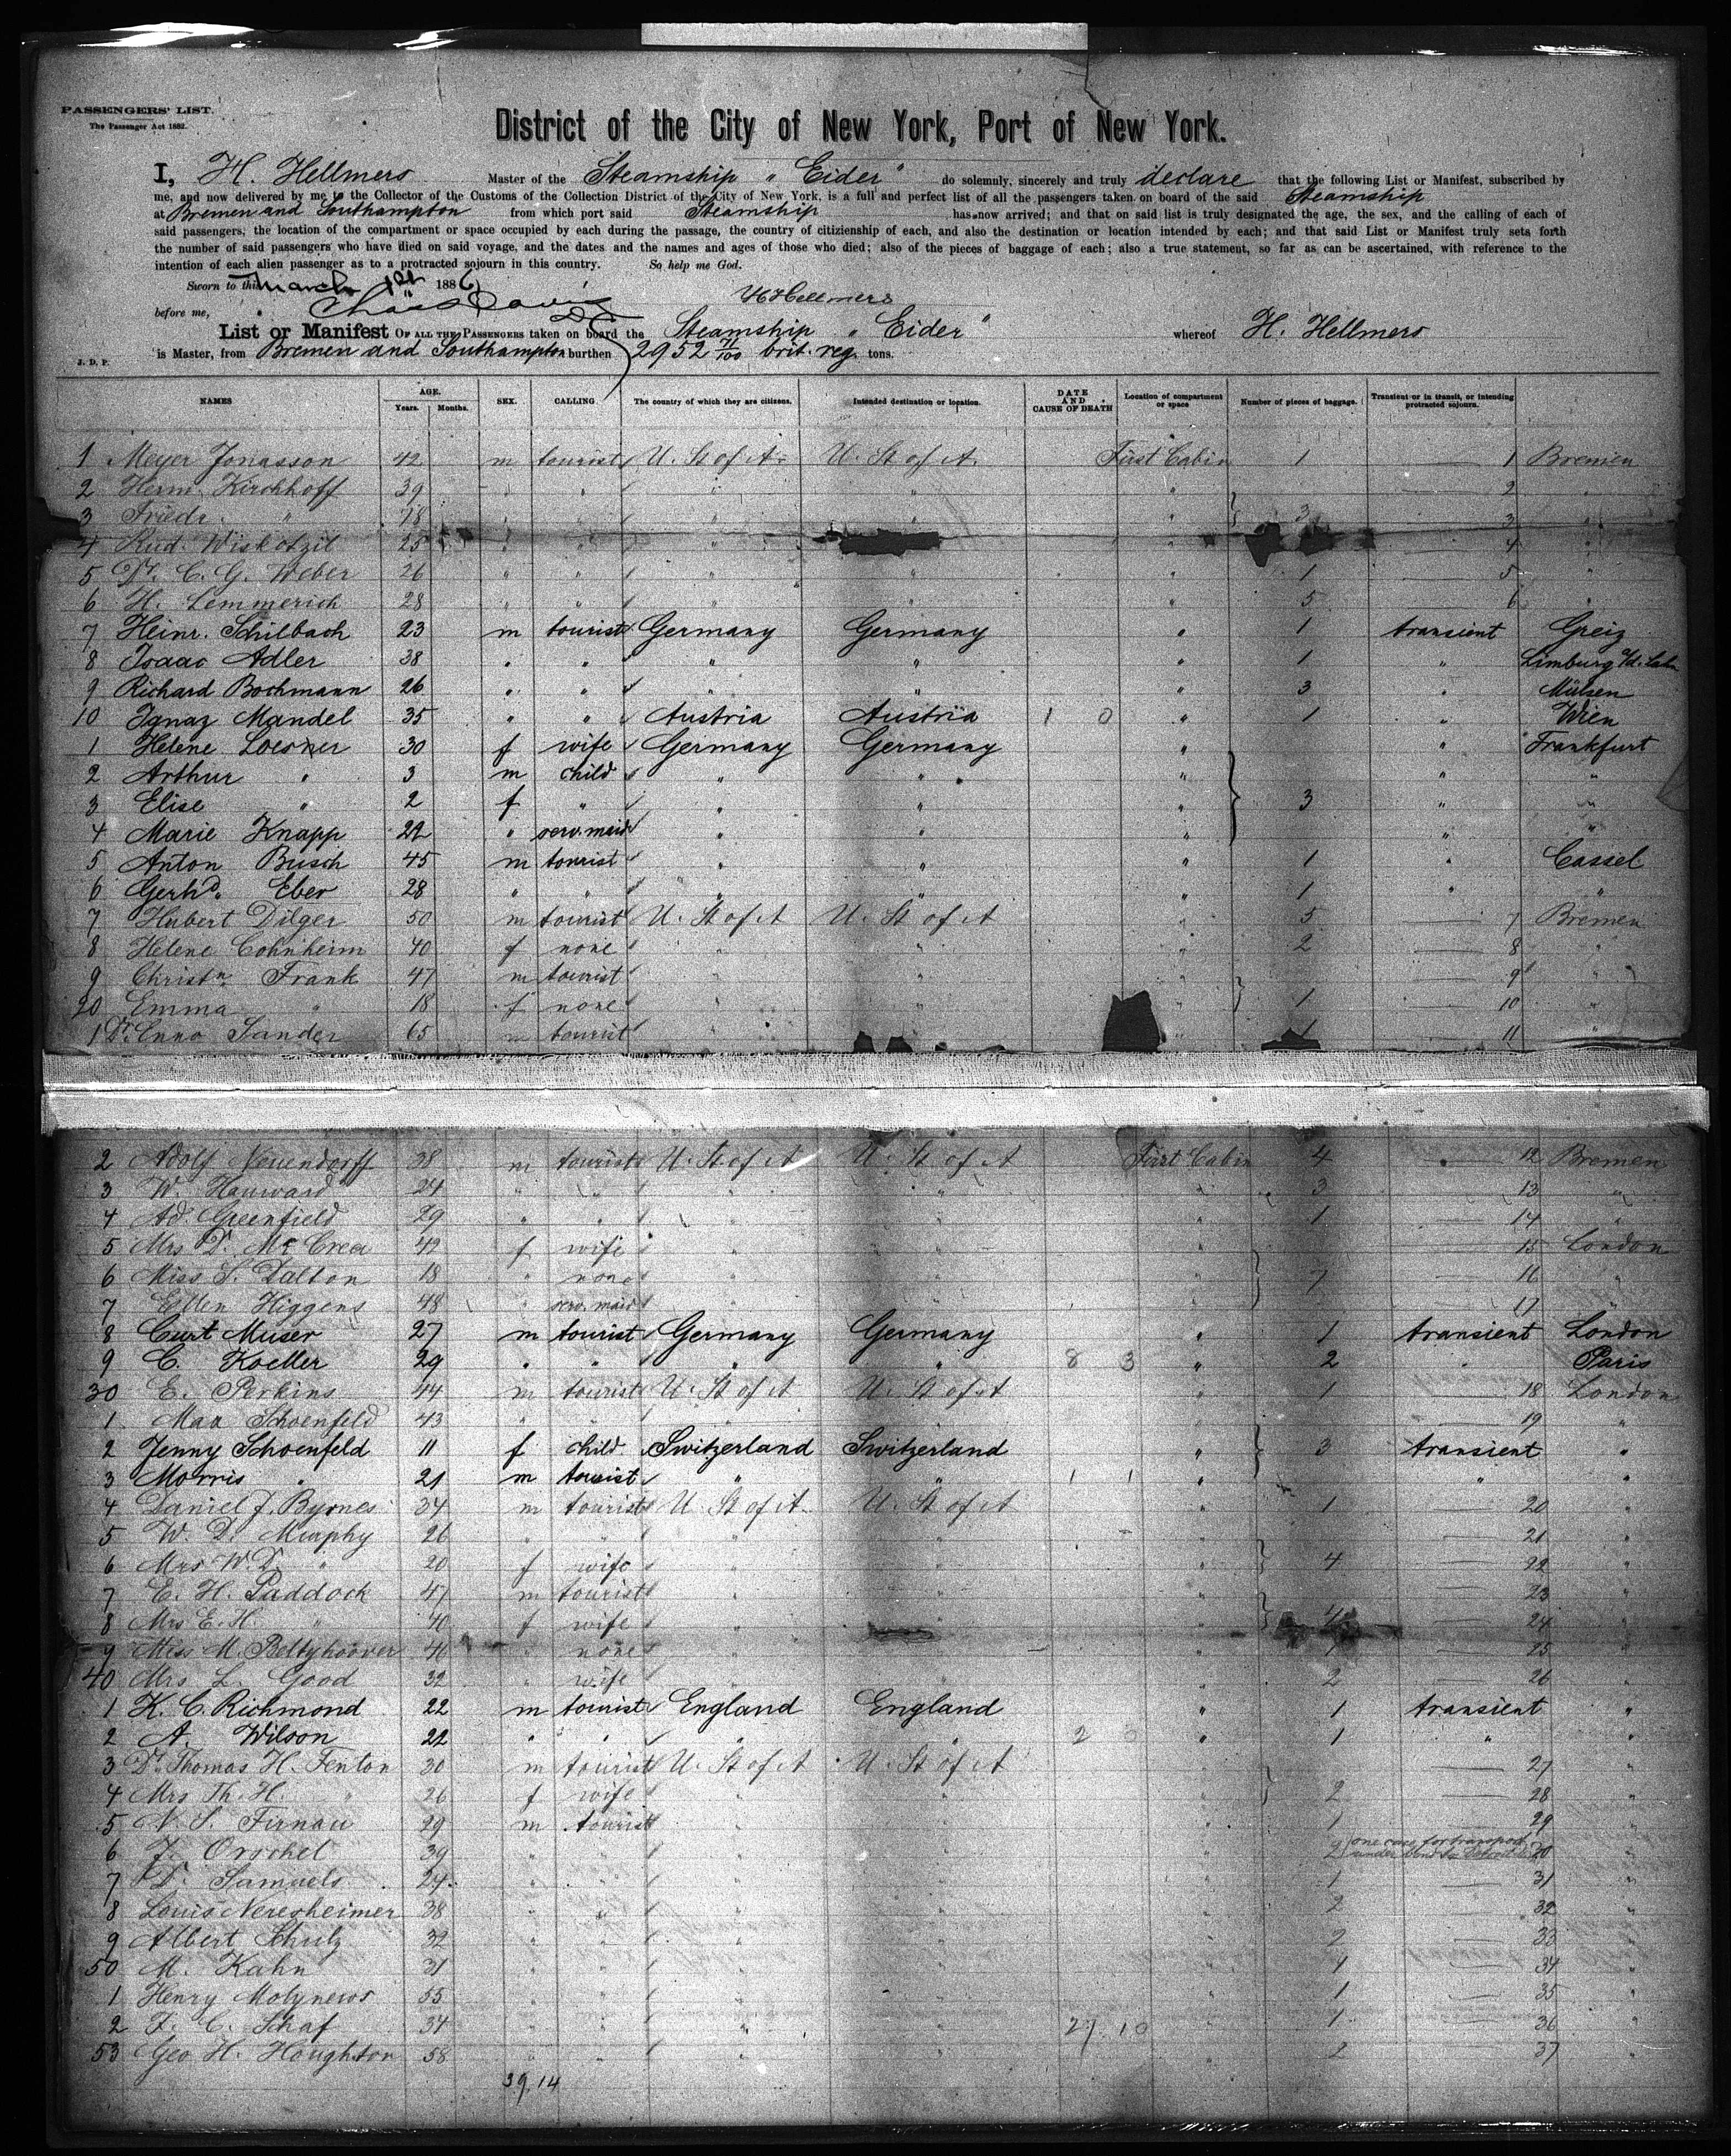 PASSENGERS' LIST.
The Passenger Act 1882.
District of the City of New York, Port of New York.
I, H. Hellmers Master of the Steamship "Eider" do solemnly, sincerely and truly declare that the following List or Manifest, subscribed by
me, and now delivered by me to the Collector of the Customs of the Collection District of the City of New York, is a full and perfect list of all the passengers taken on board of the said Steamship
at Bremen and Southampton from which port said Steamship has now arrived; and that on said list is truly designated the age, the sex, and the calling of each of
said passengers, the location of the compartment or space occupied by each during the passage, the country of citizienship of each, and also the destination or location intended by each; and that said List or Manifest truly sets forth
the number of said passengers who have died on said voyage, and the dates and the names and ages of those who died; also of the pieces of baggage of each; also a true statement, so far as can be ascertained, with reference to the
intention of each alien passenger as to a protracted sojourn in this country. So help me God.
Sworn to this March 1st 1886
before me, Chas Davis DC H Hellmers
List or Manifest OF ALL THE PASSENGERS taken on board the Steamship "Eider" whereof H. Hellmers
J. D. P. is Master, from Bremen and Southampton burthen 2952 71/100 brit. reg. tons.
NAMES AGE. Years. Months. SEX. CALLING The country of which they are citizens. Intended destination or location. DATE AND CAUSE OF DEATH Location of compartment or space Number of pieces of baggage. Transient or in transit, or intending protracted sojourn.
1 Meyer Jonasson 42 m tourist U. St of A. U. St of A. First Cabin 1 — 1 Bremen
2 Herm. Kirchhoff 39 " " " " " — 2 "
3 Friedr. " 18 " " " " " 3 — 3 "
4 Rud. 25 " " " " — 4 "
5 Dr. C. G. Weber 26 " " " " " 1 — 5 "
6 H. Lemmerich 28 " " " " " 5 — 6 "
7 Heinr. Schilbach 23 m tourist Germany Germany " 1 transient Greiz
8 Isaac Adler 38 " " " " " 1 " Limburg a/d. Lahn
9 Richard Bochmann 26 " " " " " 3 " Mülsen
10 Ignaz Mandel 35 " " Austria Austria 1 0 " 1 " Wien
1 Helene Loesner 30 f wife Germany Germany " " Frankfurt
2 Arthur " 3 m child " " " " "
3 Elise " 2 f " " " " 3 " "
4 Marie Knapp 22 " serv. maid " " " " "
5 Anton Busch 45 m tourist " " " 1 " Cassel
6 Gerhd. Eber 28 " " " " " 1 " "
7 Hubert Dilger 50 m tourist U. St of A U. St of A " 5 — 7 Bremen
8 Helene Cohnheim 40 f none " " " 2 — 8 "
9 Christn. Frank 47 m tourist " " " — 9 "
20 Emma " 18 f none " " " 1 — 10 "
1 Dr. Enno Sander 65 m tourist " " 1 — 11 "
2 Adolf Neuendorff 38 m tourist U. St. of A U. St of A First Cabin 4 — 12 Bremen
3 W. Hauward 24 " " " " " 3 — 13 "
4 Ad. Greenfield 29 " " " " " 1 — 14 "
5 Mrs D. Mc Crea 42 f wife " " " — 15 London
6 Miss S. Dalton 18 " none " " " 7 — 16 "
7 Ellen Higgens 48 " serv. maid " " " — 17 "
8 Curt Muser 27 m tourist Germany Germany " 1 transient London
9 C. Koeller 29 " " " " 8 3 " 2 " Paris
30 E. Perkins 44 m tourist U. St of A U. St of A " 1 — 18 London
1 Max Schoenfeld 43 " " " " " — 19 "
2 Jenny Schoenfeld 11 f child Switzerland Switzerland " 3 transient "
3 Morris " 21 m tourist " " 1 1 " " "
4 Daniel J. Byrnes 34 m tourist U. St of A U. St of A " 1 — 20 "
5 W. D. Murphy 26 " " " " " — 21 "
6 Mrs W. D. " 20 f wife " " " 4 — 22 "
7 E. H. Paddock 47 m tourist " " " — 23 "
8 Mrs E. H. " 40 f wife " " 4 — 24 "
9 Miss M. Beltzhoover 46 " none " " 1 — 25 "
40 Mrs L. Good 32 " wife " " " 2 — 26 "
1 K. C. Richmond 22 m tourist England England " 1 transient "
2 A. Wilson 22 " " " " 2 0 " 1 " "
3 Dr. Thomas H. Fenton 30 m tourist U. St of A U. St of A " — 27 "
4 Mrs Th. H. " 26 f wife " " " 2 — 28 "
5 N. S. Firnau 29 m tourist " " " 1 — 29 "
6 F. Orschel 39 " " " " " 2 one case for transport under bond to 30 "
7 D. Samuels 24 " " " " " 1 — 31 "
8 Louis Neresheimer 38 " " " " " 2 — 32 "
9 Albert Schulz 32 " " " " " 2 — 33 "
50 M. Kahn 31 " " " " " 4 — 34 "
1 Henry Molyneux 55 " " " " " 1 — 35 "
2 F. C. Schaf 34 " " " " 27 10 " 1 — 36 "
53 Geo H. Houghton 58 " " " " " 2 — 37 "
39.14